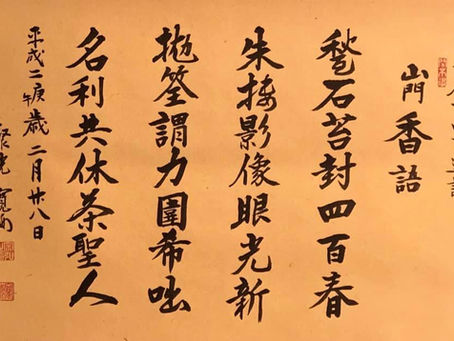 山門香語
甃石苔封四百春
朱樓影像眼光新
抛筌謂力圍希咄
名利共休茶聖人
平成二庚午歳二月廿八日